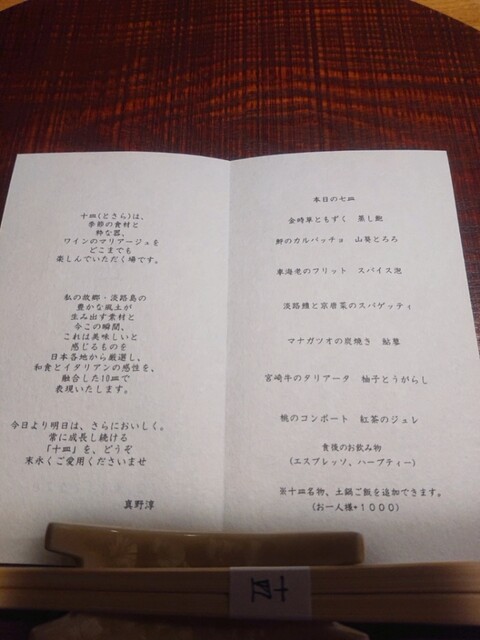 十皿(とさら)は、
季節の食材と
粋な器、
ワインのマリアージュを
どこまでも
楽しんでいただく場です。
私の故郷・淡路島の
豊かな風土が
生み出す素材と
今この瞬間、
これは美味しいと
感じるものを
日本各地から厳選し、
和食とイタリアンの感性を、
融合した10皿で
表現いたします。
今日より明日は、さらにおいしく。
常に成長し続ける
「十皿」を、どうぞ
末永くご愛用くださいませ
真野淳
本日の七皿
金時草ともずく 蒸し鮑
鮃のカルパッチョ 山葵とろろ
車海老のフリット スパイス泡
淡路鱧と京唐菜のスパゲッティ
マナガツオの炭焼き 鮎
宮崎牛のタリアータ 柚子とうがらし
桃のコンポート 紅茶のジュレ
食後のお飲み物
(エスプレッソ、ハーブティー)
※十皿名物、土鍋ご飯を追加できます。
(お一人様+1000)
十皿